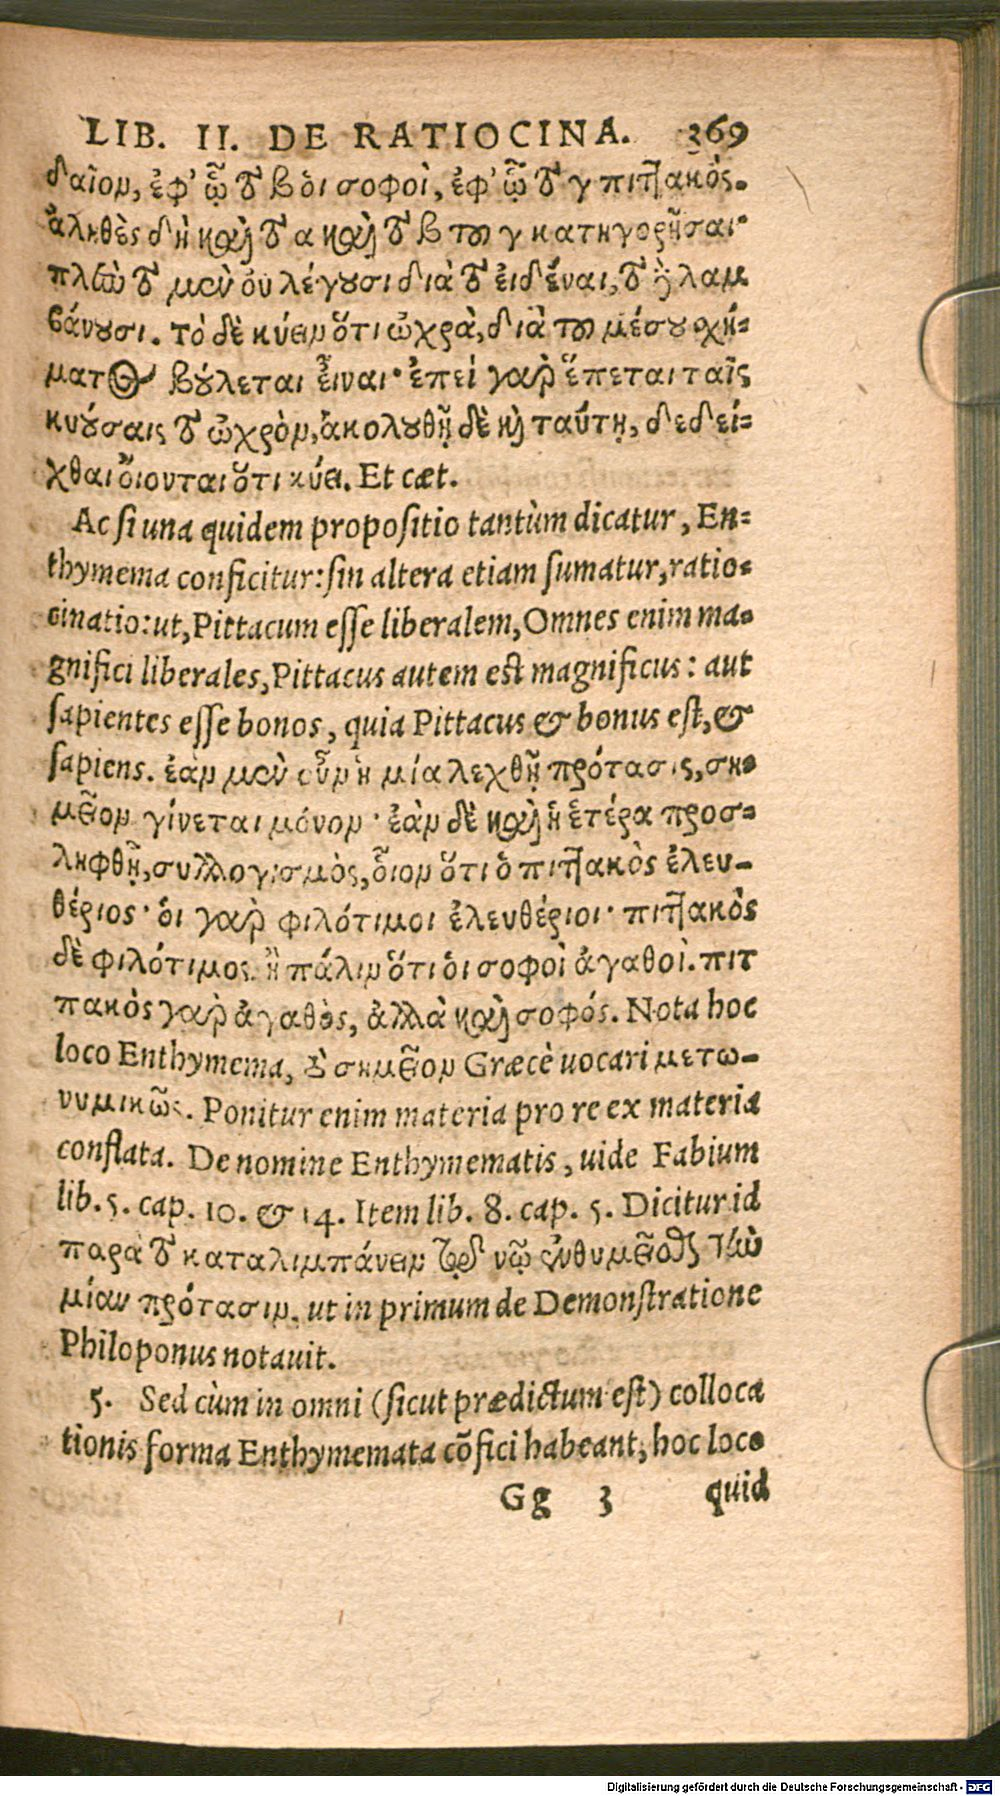 LIB. II. DE RATIOCINA. 369
δαῖον, ἐφ' ᾧ τὸ β ὁι σοφοὶ, ἐφ' ᾧ τὸ γ πιττακὸς.
ἀληθὲς δὴ καὶ τὸ α καὶ τὸ β του γ κατηγορῆσαι·
πλὴν τὸ μὲν ὀυ λέγουσι διὰ τὸ ἐιδέναι, τὸ δὲ λαμ
βάνουσι. τὸ δὲ κύειν ὅτι ὠχρὰ, διὰ του μέσου σχή-
ματος βούλεται εἶναι· ἐπεὶ γαρ ἕπεται ταῖς
κυούσαις τὸ ὠχρὸν, ἀκολουθεῖ δὲ κỳ ταύτῃ, δεδεί-
χθαι ὄιονται ὅτι κύει. Et cæt.
Ac si una quidem propositio tantùm dicatur, En-
thymema conficitur: sin altera etiam sumatur, ratio-
cinatio: ut, Pittacum esse liberalem, Omnes enim ma-
gnifici liberales, Pittacus autem est magnificus: aut
sapientes esse bonos, quia Pittacus & bonus est, &
sapiens. ἐὰν μὲν οὖν ἡ μία λεχθῇ πρότασις, ση-
μεῖον γίνεται μόνον· ἐὰν δὲ καὶ ἡ ἑτέρα προσ-
ληφθῇ, συλλογισμὸς, ὅιον ὅτι ὁ πιττακὸς ἐλευ-
θέριος· ὁι γαρ φιλότιμοι ἐλευθέριοι· πιττακὸς
δὲ φιλότιμος. ἢ πάλιν ὅτι ὁι σοφοὶ ἀγαθοὶ. πιτ
πακὸς γαρ ἀγαθὸς, ἀλλὰ καὶ σοφός. Nota hoc
loco Enthymema, τὸ σημεῖον Græcè uocari μετω-
νυμικῶς. Ponitur enim materia pro re ex materia
conflata. De nomine Enthymematis, uide Fabium
lib. 5. cap. 10. & 14. Item lib. 8. cap. 5. Dicitur id
παρὰ τὸ καταλιμπάνειν τῷ νῷ ἐνθυμεῖσθαι τὴν
μίαν πρότασιν. ut in primum de Demonstratione
Philoponus notauit.
5. Sed cùm in omni (sicut prædictum est) colloca
tionis forma Enthymemata cõfici habeant, hoc loco
Gg 3 quid
Digitalisierung gefördert durch die Deutsche Forschungsgemeinschaft - DFG